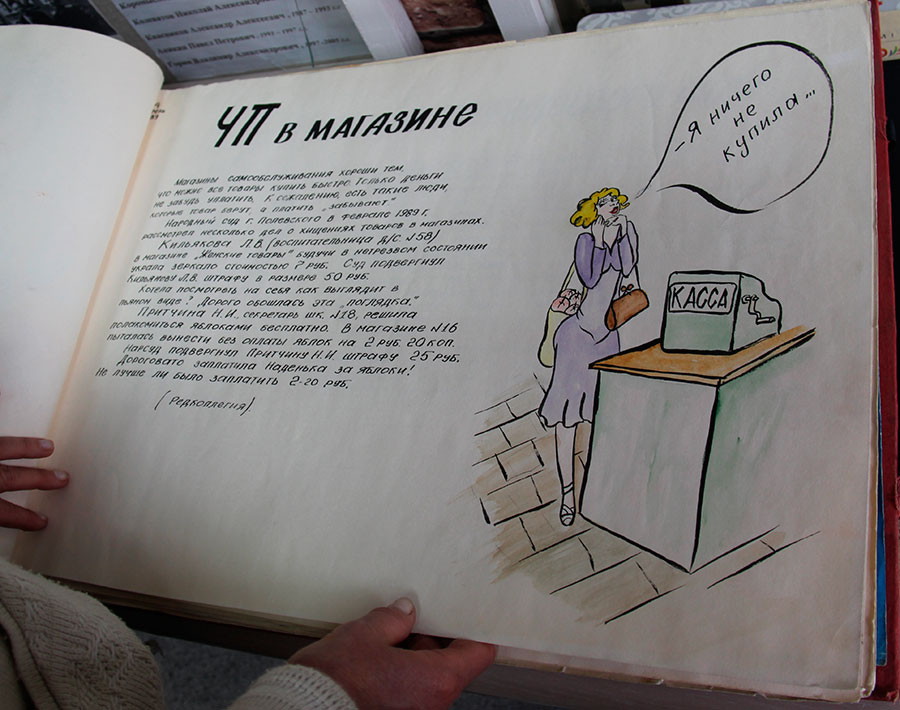 Коновалов Николай Александрович
Коновалов Александр Алексеевич, - 1987 - 1991 гг.
Аникин Павел Петрович, - 1991 - 1997 гг.
Горин Владимир Александрович, - 1997-2005 гг.
ЧП в МАГАЗИНЕ
Магазины самообслуживания хороши тем,
что можно все товары купить быстро. Только деньги
не забудь уплатить. К сожалению, есть такие люди,
которые товар берут, а платить „забывают".
Народный суд г. Полевского в феврале 1989 г.
рассмотрел несколько дел о хищениях товаров в магазинах.
Кильякова Л.В. (воспитательница д/с №58)
в магазине „Женские товары" будучи в нетрезвом состоянии
украла зеркало стоимостью 7 руб. Суд подвергнул
Кильякову Л.В. штрафу в размере 50 руб.
Хотела посмотреть на себя как выглядит в
пьяном виде? Дорого обошлась эта „поглядка".
Притчина Н.И. секретарь шк. №18, решила
полакомиться яблоками бесплатно. В магазине №16
пыталась вынести без оплаты яблок на 2 руб. 20 коп.
Нарсуд подвергнул Притчину Н.И. штрафу 25 руб.
Дороговато заплатила Наденька за яблоки!
Не лучше ли было заплатить 2-20 руб.
(Редколлегия).
- Я ничего
не
купила...
КАССА